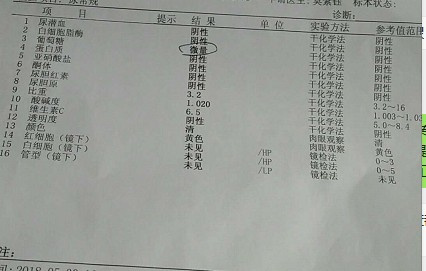 尿常规 标本状态:
诊断:
项 目 提示 结 果 单 位 实验方法 参考值范
1 尿潜血 阴性 干化学法 阴性
2 白细胞脂酶 阴性 干化学法 阴性
3 葡萄糖 阴性 干化学法 阴性
4 蛋白质 微量 干化学法 阴性
5 亚硝酸盐 阴性 干化学法 阴性
6 酮体 阴性 干化学法 阴性
7 尿胆红素 阴性 干化学法 阴性
8 尿胆原 3.2 干化学法 3.2~16
9 比重 1.020 干化学法 1.003~1.03
10 酸碱度 6.5 干化学法 5.0~8.4
11 维生素C 阴性 干化学法 阴性
12 透明度 清 肉眼观察 清
13 颜色 黄色 肉眼观察 黄色
14 红细胞(镜下) 未见 /HP 镜检法 0~3
15 白细胞(镜下) 未见 /HP 镜检法 0~5
16 管型(镜下) 未见 /LP 镜检法 未见
注: